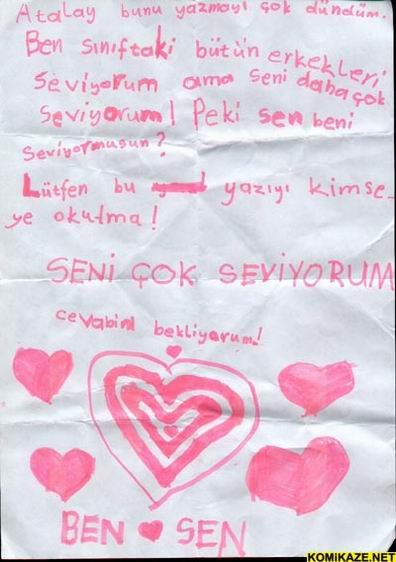 Atalay bunu yazmayı çok dündüm.
Ben sınıftaki bütün erkekleri
seviyorum ama seni daha çok
seviyorum! Peki sen beni
seviyormusun?
Lütfen bu yazıyı kimse-
ye okutma!
SENİ ÇOK SEVİYORUM
cevabini bekliyorum!
BEN SEN
KOMiKAZE.NET